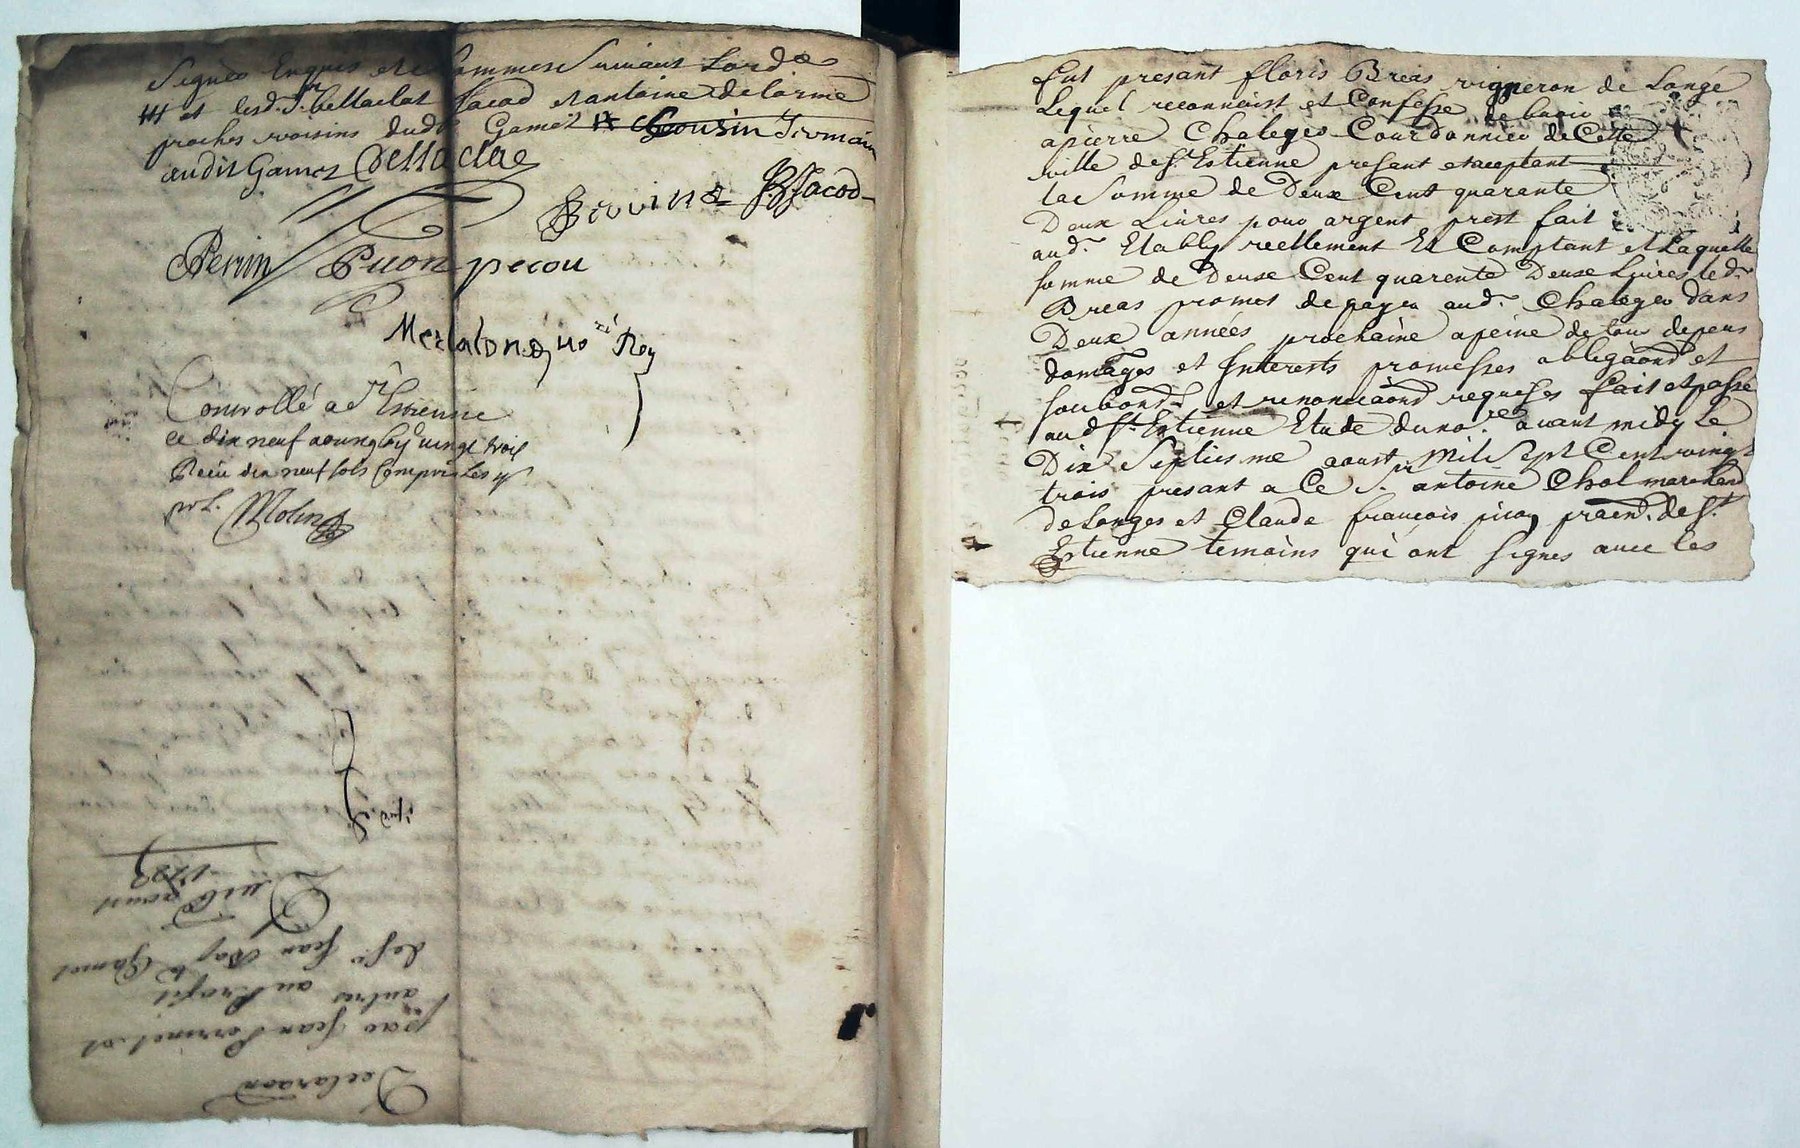 signés Enquis et sommés suivant Lordce
et lesd. Sr. dellaclat Jacod et antoine delorme
proches voisins dudt Gamet cousin Germain
audit Gamet Dellaclae
BJacod
Perrin Puon perou
Merlaton Roy
Controllé a St Estienne
ce dix neuf aoust vingt trois
Receu dix neuf sols compris les
Molin
Declaraõn
par Jean Perrinet et
autres au Profit
de Sr Jean Bapte Gamet
Du 18 aoust
1723
fut presant floris Breas vigneron de Longé
Lequel reconnoist et Confesse de buoir
a pierre Chaleyer Courdonnier de Cette
ville de St Estienne presant et acceptant
la Somme de Deux Cent quarante
Deux Livres pour argent prest fait
aud. Etably reellement Et Comptant et Laquelle
somme de Deuxe Cent quarente Deuxe Livres led.
Breas promet de payer aud. Chaleyer dans
Deux années prochaine a peine de tous depens
domages et Interests promesses obligaõns et
soubond. et renonciaõns requises fait et passé
aud St Estienne Etude du no.re avant midy Le
Dix Septiesme aoust Mil Sept Cent vingt
trois presant a Ce Sr. antoine Chol marchand
de Longes et Claude francois picon praen. de St
Estienne temoins qui ont signes avec les